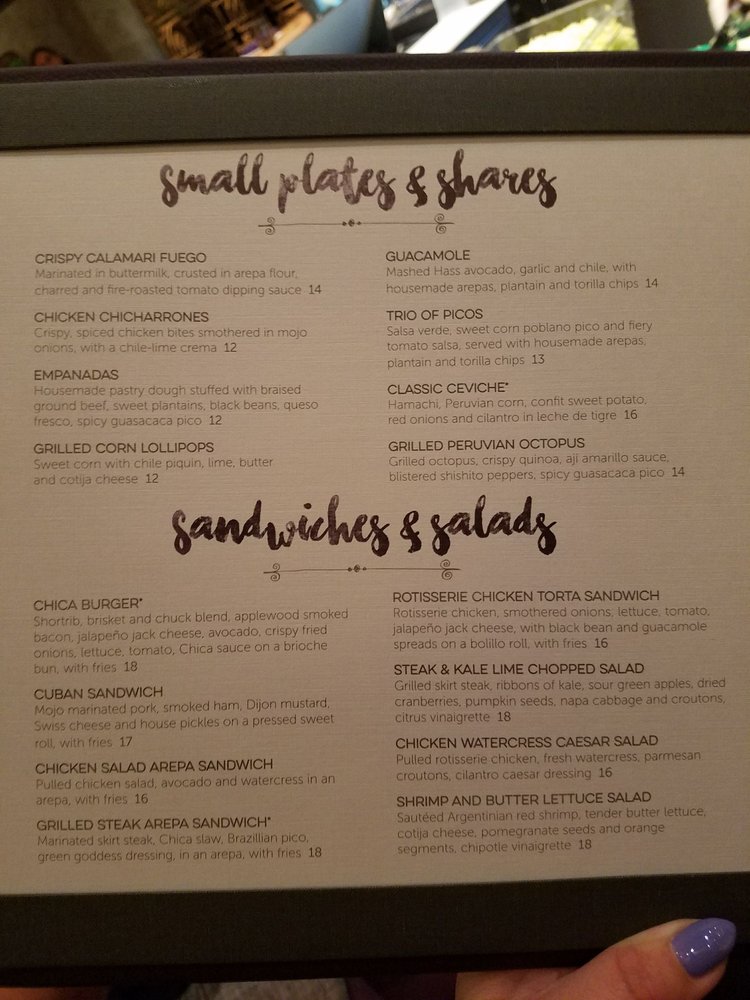 small plates & shares
CRISPY CALAMARI FUEGO
Marinated in buttermilk, crusted in arepa flour,
charred and fire-roasted tomato dipping sauce 14
CHICKEN CHICHARRONES
Crispy, spiced chicken bites smothered in mojo
onions, with a chile-lime crema 12
EMPANADAS
Housemade pastry dough stuffed with braised
ground beef, sweet plantains, black beans, queso
fresco, spicy guasacaca pico 12
GRILLED CORN LOLLIPOPS
Sweet corn with chile piquin, lime, butter
and cotija cheese 12
GUACAMOLE
Mashed Hass avocado, garlic and chile, with
housemade arepas, plantain and torilla chips 14
TRIO OF PICOS
Salsa verde, sweet corn poblano pico and fiery
tomato salsa, served with housemade arepas,
plantain and torilla chips 13
CLASSIC CEVICHE*
Hamachi, Peruvian corn, confit sweet potato,
red onions and cilantro in leche de tigre 16
GRILLED PERUVIAN OCTOPUS
Grilled octopus, crispy quinoa, ají amarillo sauce,
blistered shishito peppers, spicy guasacaca pico 14
sandwiches & salads
CHICA BURGER*
Shortrib, brisket and chuck blend, applewood smoked
bacon, jalapeño jack cheese, avocado, crispy fried
onions, lettuce, tomato, Chica sauce on a brioche
bun, with fries 18
CUBAN SANDWICH
Mojo marinated pork, smoked ham, Dijon mustard,
Swiss cheese and house pickles on a pressed sweet
roll, with fries 17
CHICKEN SALAD AREPA SANDWICH
Pulled chicken salad, avocado and watercress in an
arepa, with fries 16
GRILLED STEAK AREPA SANDWICH*
Marinated skirt steak, Chica slaw, Brazillian pico,
green goddess dressing, in an arepa, with fries 18
ROTISSERIE CHICKEN TORTA SANDWICH
Rotisserie chicken, smothered onions, lettuce, tomato,
jalapeño jack cheese, with black bean and guacamole
spreads on a bolillo roll, with fries 16
STEAK & KALE LIME CHOPPED SALAD
Grilled skirt steak, ribbons of kale, sour green apples, dried
cranberries, pumpkin seeds, napa cabbage and croutons,
citrus vinaigrette 18
CHICKEN WATERCRESS CAESAR SALAD
Pulled rotisserie chicken, fresh watercress, parmesan
croutons, cilantro caesar dressing 16
SHRIMP AND BUTTER LETTUCE SALAD
Sautéed Argentinian red shrimp, tender butter lettuce,
cotija cheese, pomegranate seeds and orange
segments, chipotle vinaigrette 18